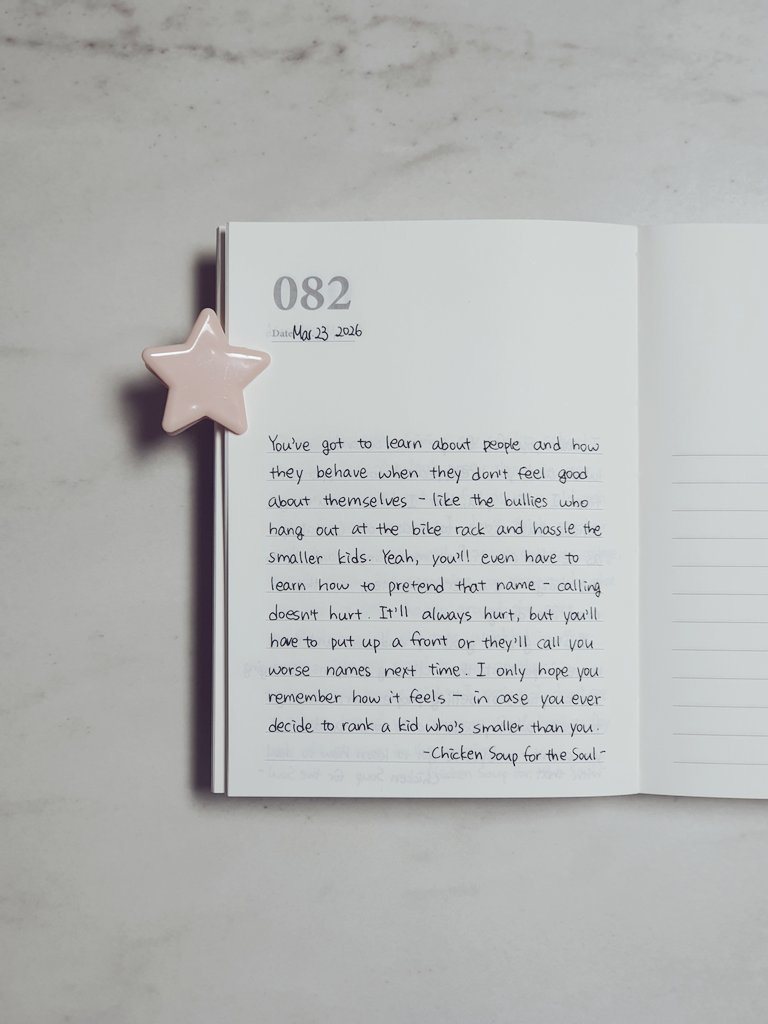 082
Date Mar 23 2026
You've got to learn about people and how
they behave when they don't feel good
about themselves - like the bullies who
hang out at the bike rack and hassle the
smaller kids. Yeah, you'll even have to
learn how to pretend that name - calling
doesn't hurt. It'll always hurt, but you'll
have to put up a front or they'll call you
worse names next time. I only hope you
remember how it feels - in case you ever
decide to rank a kid who's smaller than you.
-Chicken Soup for the Soul-